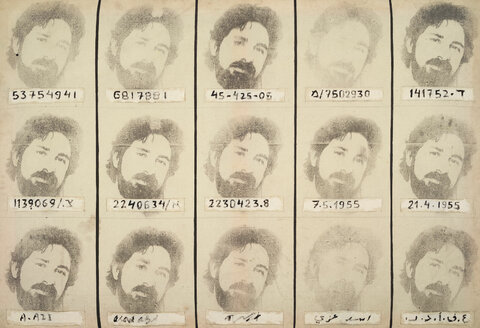 53754941
6817881
45-425-08
מ/7502930
141752-ד
1139069/.צ
2240634/א
2230423.8
7.5.1955
21.4.1955
A.AZI
اسد عزي